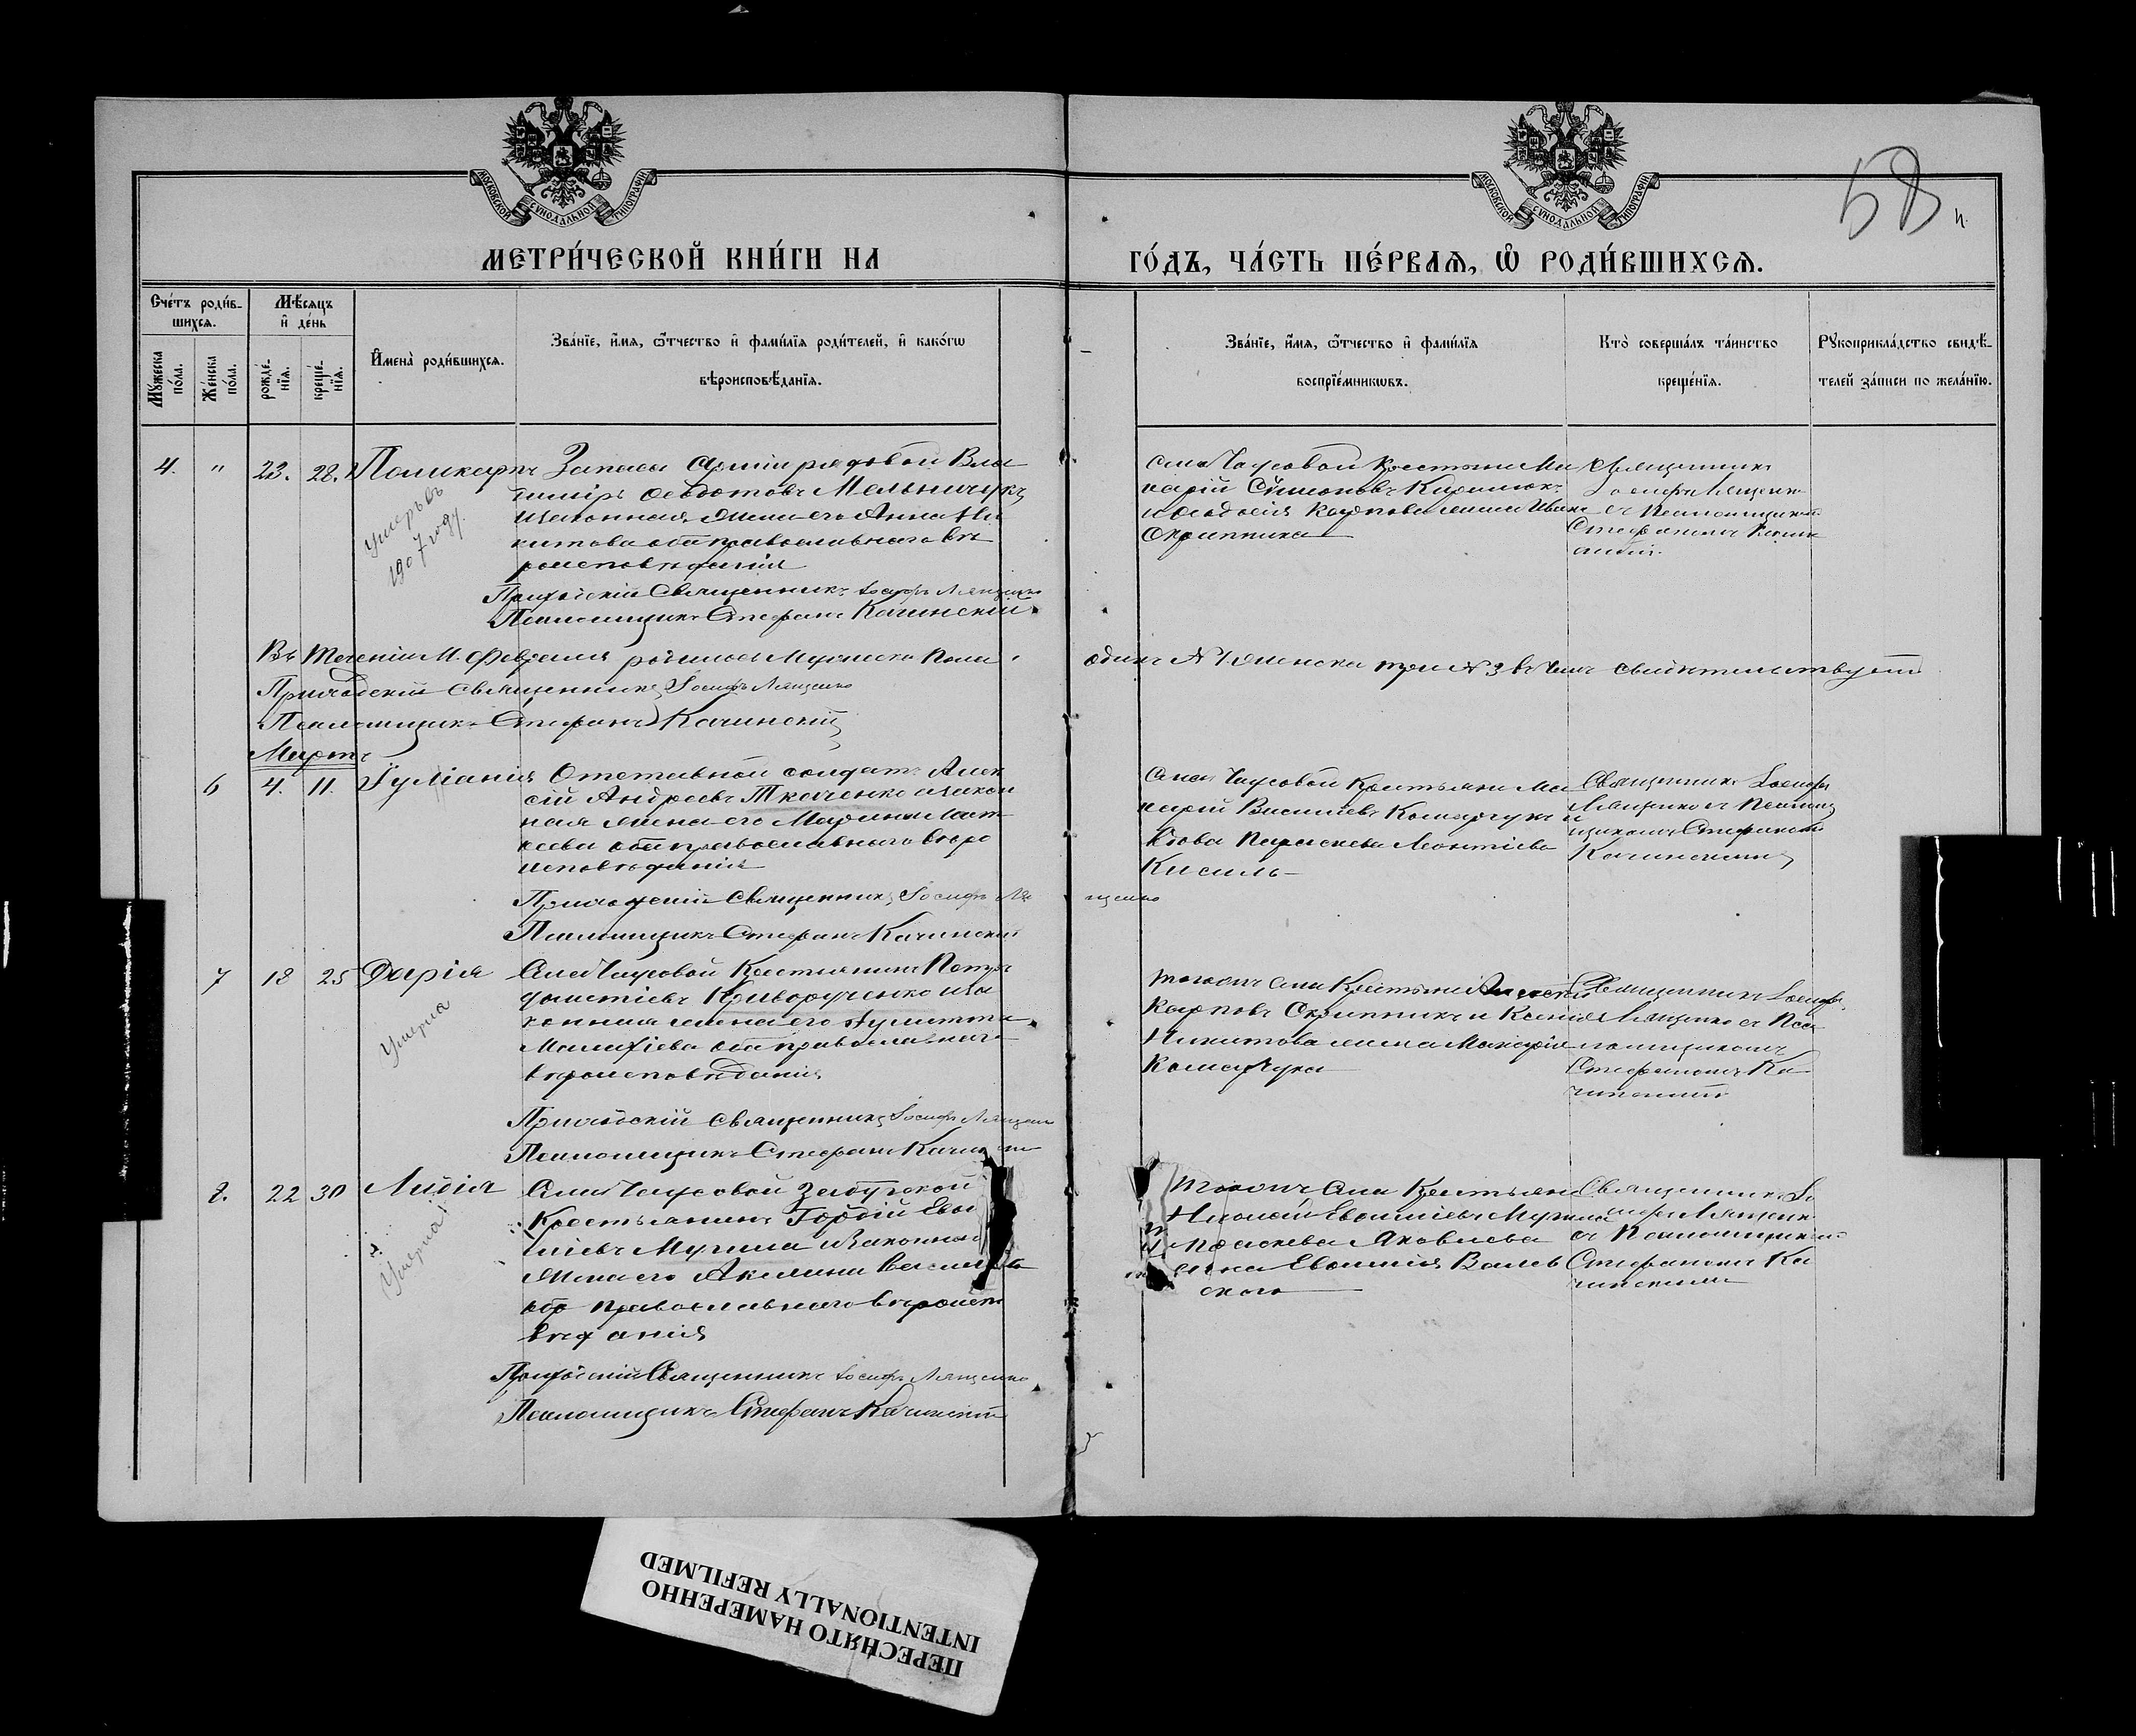 МОСКОВСКОЙ СУНОДАЛЬНОЙ ТИПОГРАФІИ
МОСКОВСКОЙ СУНОДАЛЬНОЙ ТИПОГРАФІИ
58
МЕТРИ́ЧЕСКОЙ КНИ́ГИ НА
ГО́ДЪ, ЧА́СТЬ ПЕ́РВАѦ, Ѡ РОДИ́ВШИХСѦ.
Сче́тъ роди́в-
шихсѧ.
Мѣ́сѧцъ
и҆ де́нь
Мꙋ́жеска
по́ла.
Же́нска
по́ла.
рожде́-
нїѧ.
креще́-
нїѧ.
И҆мена̀ роди́вшихсѧ.
Зва́нїе, и҆́мѧ, ѻ҆́тчество и҆ фами́лїѧ роди́телей, и҆ како́гѡ
вѣроисповѣ́данїѧ.
Зва́нїе, и҆́мѧ, ѻ҆́тчество и҆ фами́лїѧ
воспрїе́мникѡвъ.
Кто̀ соверша́лъ та́инство
креще́нїѧ.
Рꙋкоприкла́дство свидѣ́-
телей за́писи по жела́нїю.
4. " 23. 28. Поликарпъ
Умеръ въ
1907 году.
Запаса Арміи рядовой Вла
диміръ Ѳеодотовъ Мельничукъ
и законная жена его Анна Ни
китова оба православнаго вѣ
роисповѣданія
Приходскій Священникъ Іосифъ Лященко
Псаломщикъ Стефанъ Качинскій
села Чаусовой Крестьяни Ма
карій Симоновъ
и Ѳеодосія Карпова жена Ивана
Скрипника
Священникъ
Іосифъ Лященко
съ Псаломщикомъ
Стефаномъ Качин
скимъ.
Въ теченіи М. Февраля родилось Мужеска пола
одинъ №1 женска три №3 въ чемъ свидѣтельствуетъ
Приходскій Священникъ Іосифъ Лященко
Псаломщикъ Стефанъ Качинскій
Мартъ
6 4. 11. Іуліанія
Отставной солдатъ Алек
сій Андреевъ Ткаченко и закон
ная жена его Марина
оба православнаго вѣро
исповѣданія
Приходскій Священникъ Іосифъ Лященко
Псаломщикъ Стефанъ Качинскій
села Чаусовой Крестьяни Ма
карій Васильевъ Комарчукъ и
вдова Параскева Леонтіева
Кисиль
Священникъ Іосифъ
Лященко съ Псалом
щикомъ Стефаномъ
Качинскимъ
7 18 25 Дарія
Умерла
Села Чаусовой Крестьянинъ Петръ
Криворученко и за
конная жена его Іулитта
Малахіева оба православнаго
вѣроисповѣданія
Приходскій Священникъ Іосифъ Лященко
Псаломщикъ Стефанъ Качинскій
тогожъ села Крестьяни Алексѣй
Карповъ Скрипникъ и Ксенія
Никитова жена Макарія
Комарчука
Священникъ Іосифъ
Лященко съ Пса
ломщикомъ
Стефаномъ Ка
чинскимъ
8. 22 30 Лидія
Умерла
Села Чаусовой Забугской
Крестьянинъ Гордій Евѳи
міевъ Мучила и Законная
жена его Акилина Василіева
оба православнаго вѣроиспо
вѣданія
Приходскій Священникъ Іосифъ Лященко
Псаломщикъ Стефанъ Качинскій
тогожъ села Крестьяни
Николай Евѳиміевъ Мучила
и Параскева Яковлева
жена Евѳимія Валев
ского
Священникъ Іо
сифъ Лященко
съ Псаломщикомъ
Стефаномъ Ка
чинскимъ
ПЕРЕСНЯТО НАМЕРЕННО
INTENTIONALLY REFILMED